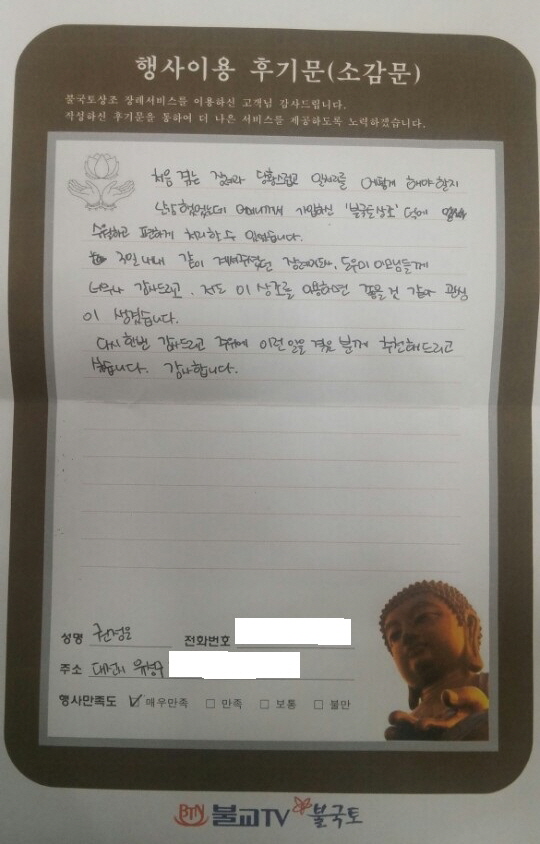 행사이용 후기문(소감문)
불국토상조 장례서비스를 이용하신 고객님 감사드립니다.
작성하신 후기문을 통하여 더 나은 서비스를 제공하도록 노력하겠습니다.
처음 겪는 장례라 당황스럽고 일처리를 어떻게 해야 할지
난감했었는데 어머니께서 가입하신 '불국토상조' 덕에
수월하고 편하게 처리할 수 있었습니다.
3일 내내 같이 계셔주셨던 장례지도사, 도우미 이모님들께
너무나 감사드리고, 저도 이 상조를 이용하면 좋을 것 같아 관심
이 생겼습니다.
다시한번 감사드리고 주위에 이런 일을 겪은 분께 추천해드리고
싶습니다. 감사합니다.
성명 권정은 전화번호
주소 대전시 유성구
행사만족도 ☑ 매우만족 □ 만족 □ 보통 □ 불만
BTN 불교TV 불국토